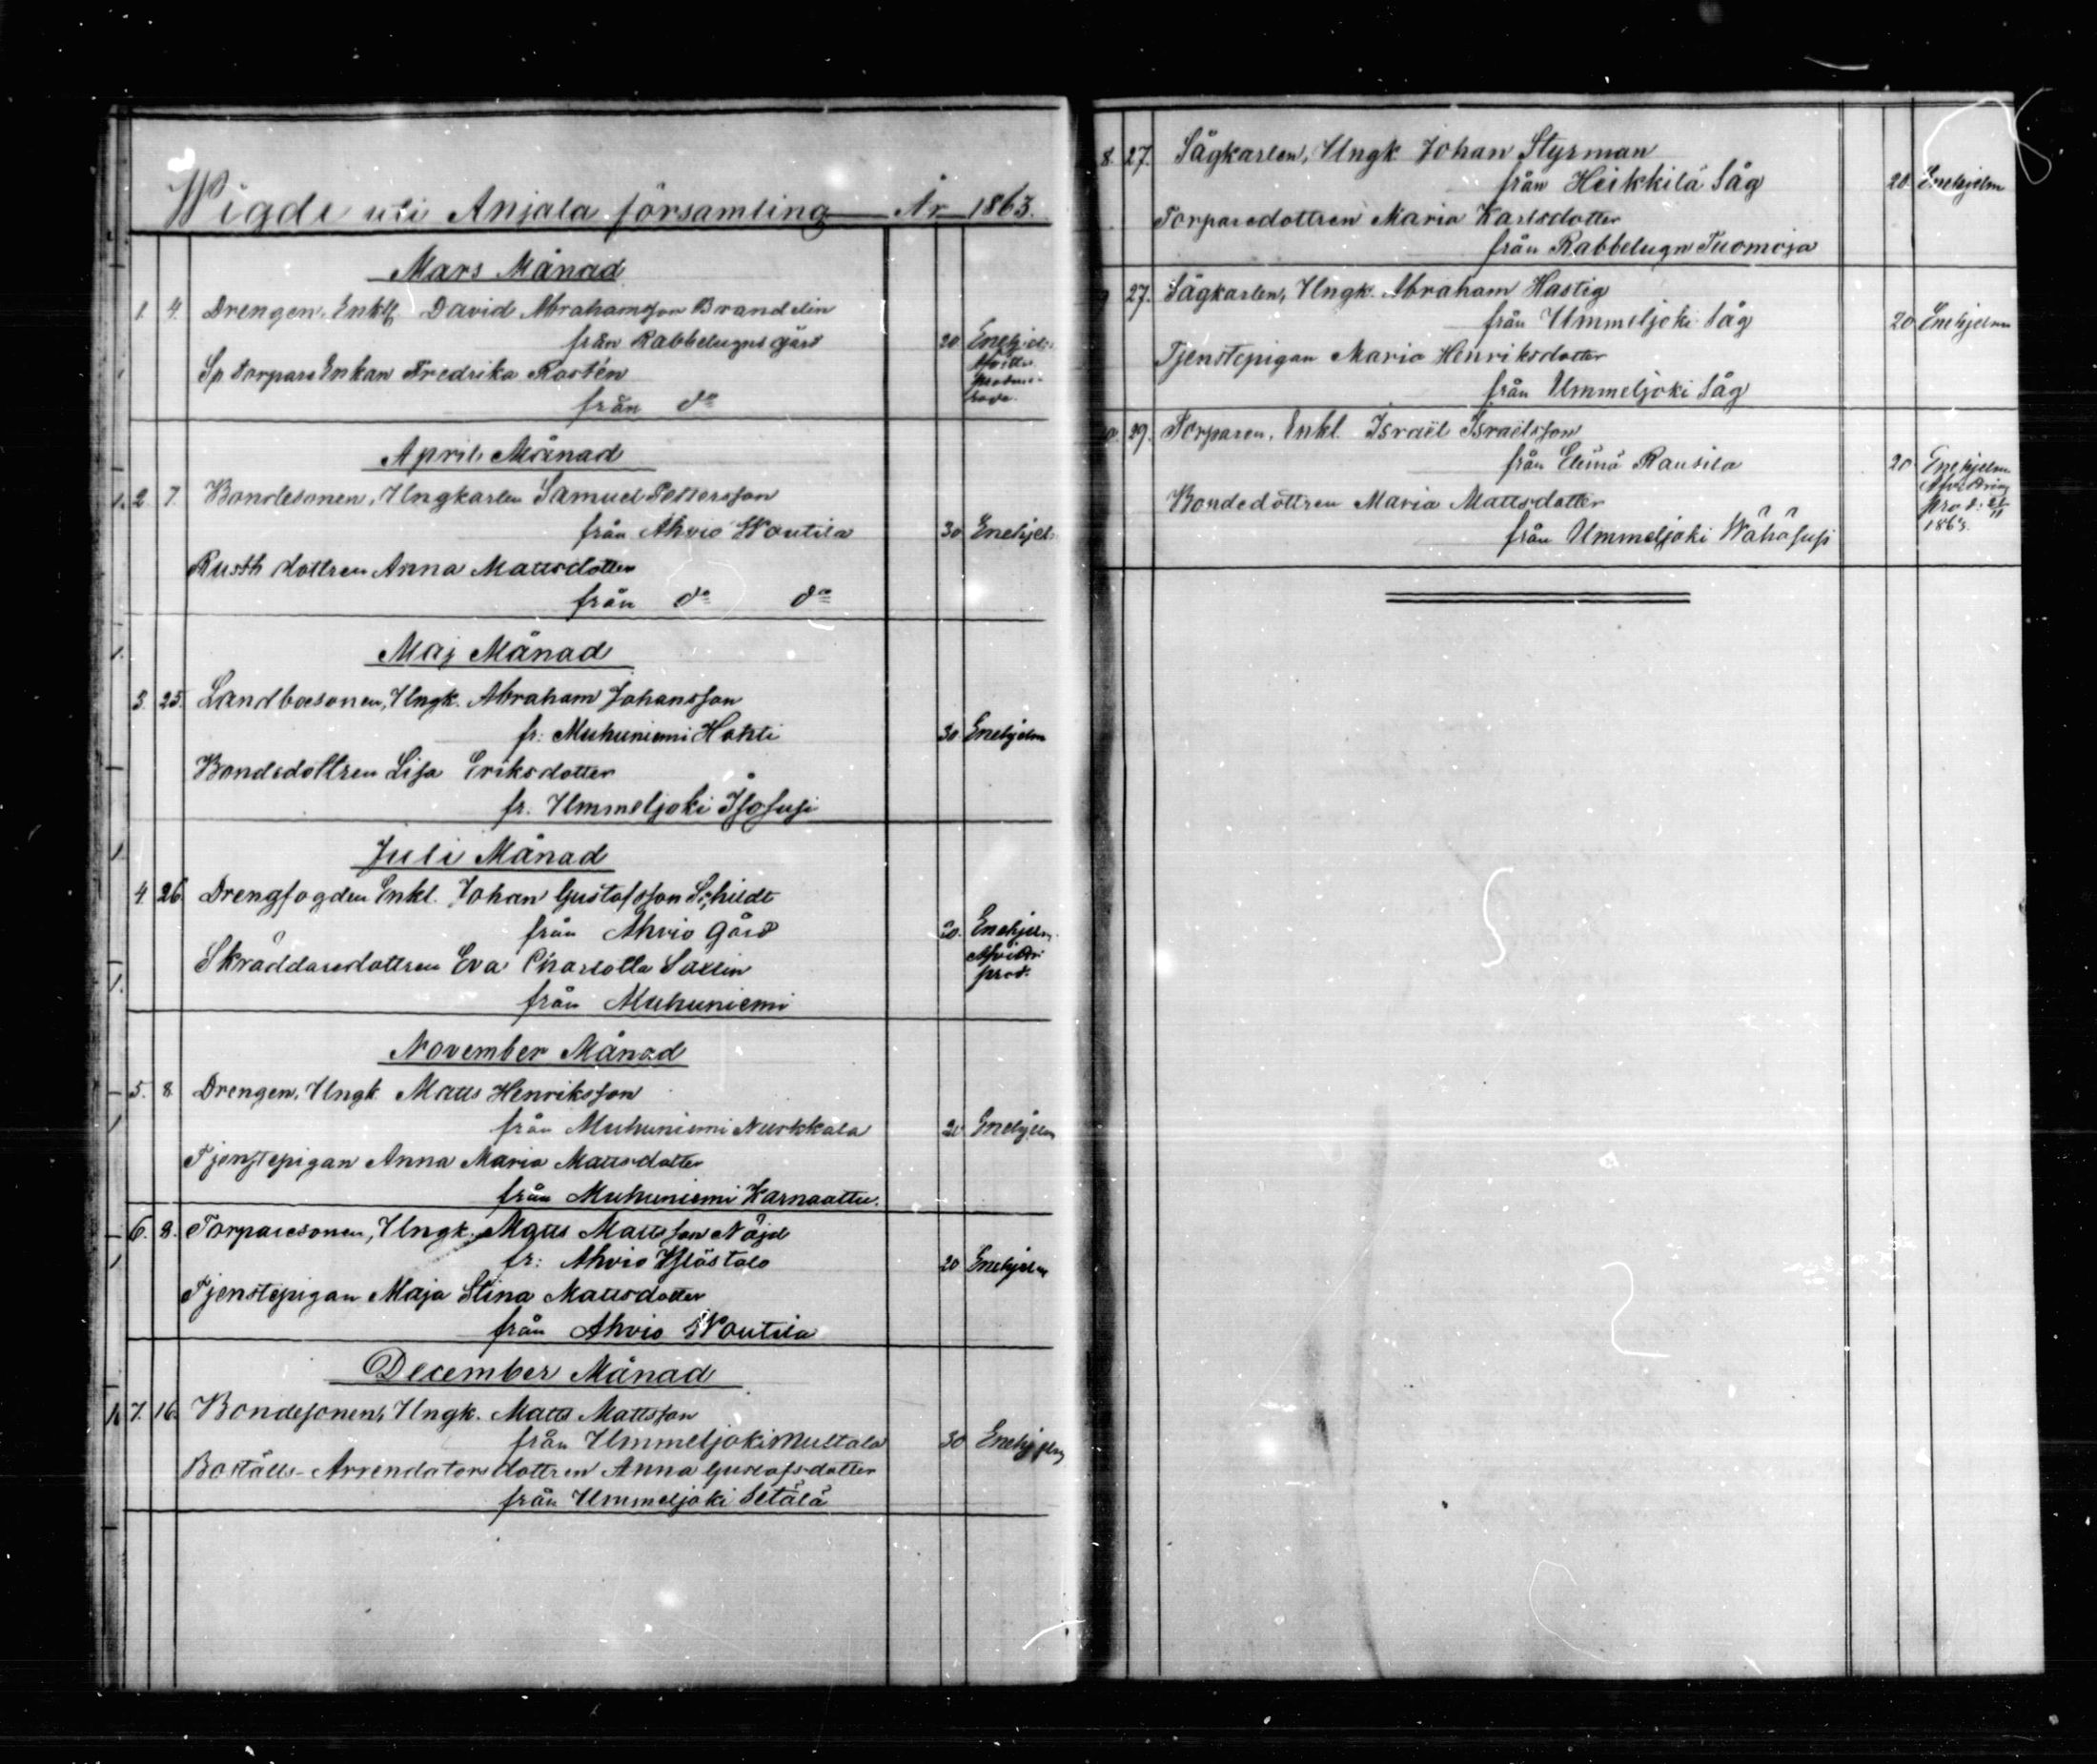 Wigde uti Anjala församling År 1863.
Mars Månad
1. 4. Drengen, Enkl. David Abrahamsson Brandelin
från Rabbelugns gård 20 Enehjel:
Sp Torpare Enkan Fredrika Rostén
från do
April Månad
2 7. Bondesonen, Ungkarlen Samuel Pettersson
från Ahvio Woutila 30 Enehjel:
Rusth dottren Anna Mattsdotter
från do do
Maj Månad
3. 25. Landboesonen, Ungk. Abraham Johansson
fr: Muhuniemi Hokti 30 Enehjelm
Bondedottren Lisa Eriksdotter
fr. Ummeljoki Isosusi
Juli Månad
4 26 Drengfogden Enkl. Johan Gustafsson Schildt
från Ahvio Gård 20. Enehjelm
Skräddaredottren Eva Charlotta Saxlin prod.
från Muhuniemi
November Månad
5. 8. Drengen, Ungk. Matts Henriksson
från Muhuniemi Nurkkala 20 Enehjelm
Tjenstepigan Anna Maria Mattsdotter
från Muhuniemi Karnaattu.
6. 8. Torparesonen, Ungk. Matts Mattsson Nöjd
fr: Ahvio Yлöstalo 20 Enehjelm
Tjenstepigan Maja Stina Mattsdotter
från Ahvio Woutila
December Månad
7. 16. Bondesonen, Ungk. Matts Mattsson
från Ummeljoki Mustala 30 Enehjelm
Boställs-Arrendators dottren Anna Gustafsdotter
från Ummeljoki Setälä
8. 27. Sågkarlen, Ungk Johan Styrman
från Heikkilä Såg 20 Enehjelm
Torparedottren Maria Karlsdotter
från Rabbelugn Tuomoja
27. Sågkarlen, Ungk. Abraham Hastig
från Ummeljoki Såg 20 Enehjelm
Tjenstepigan Maria Henriksdotter
från Ummeljoki Såg
29. Torparen, Enkl. Israël Israëlsson
från Elimä Rausila 20 Enehjelm
Bondedottren Maria Mattsdotter
från Ummeljoki Wähäsusi 1863.